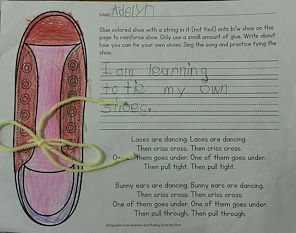 NAME Adelyn
Glue colored shoe with a string in it (not tied) onto b/w shoe on
this page to reinforce shoe. Only use a small amount of glue. Write about
how you can tie your own shoes. Sing the song and practice tying the
shoe.
I am learning
to tie my own
shoes.
Laces are dancing. Laces are dancing.
Then criss cross. Then criss cross.
One of them goes under. One of them goes under.
Then pull tight. Then pull tight.
Bunny ears are dancing. Bunny ears are dancing.
Then criss cross. Then criss cross.
One of them goes under. One of them goes under.
Then pull through. Then pull through.